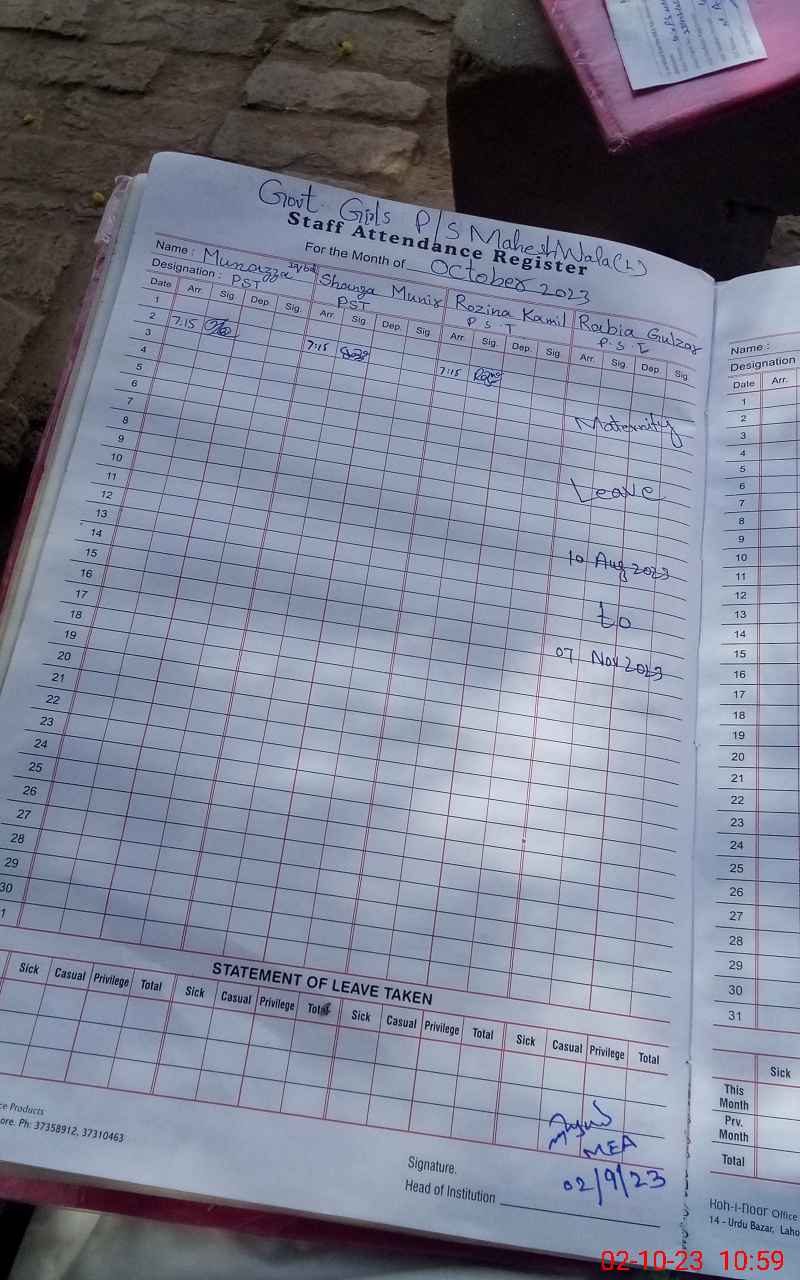 Govt. Girls P/S MaheshWala(L)
Staff Attendance Register
For the Month of October 2023
Name : Munazza Iqbal Shanza Munir Rozina Kamil Rabia Gulzar
Designation : PST PST P.S.T P.S.T
Date Arr. Sig. Dep. Sig. Arr. Sig. Dep. Sig. Arr. Sig. Dep. Sig. Arr. Sig. Dep. Sig.
1
2 7:15 7:15 7:15
3
4
5
6
7
8 Maternity
9
10
11 Leave
12
13
14
15 10 Aug 2023
16
17
18 to
19
20 07 Nov 2023
21
22
23
24
25
26
27
28
29
30
1
STATEMENT OF LEAVE TAKEN
Sick Casual Privilege Total Sick Casual Privilege Total Sick Casual Privilege Total Sick Casual Privilege Total
MEA
02/9/23
ce Products
ore. Ph: 37358912, 37310463
Signature.
Head of Institution
Name :
Designation
Date Arr.
1
2
3
4
5
6
7
8
9
10
11
12
13
14
15
16
17
18
19
20
21
22
23
24
25
26
27
28
29
30
31
Sick
This
Month
Prv.
Month
Total
Koh-i-noor Office
14 - Urdu Bazar, Laho
02-10-23 10:59